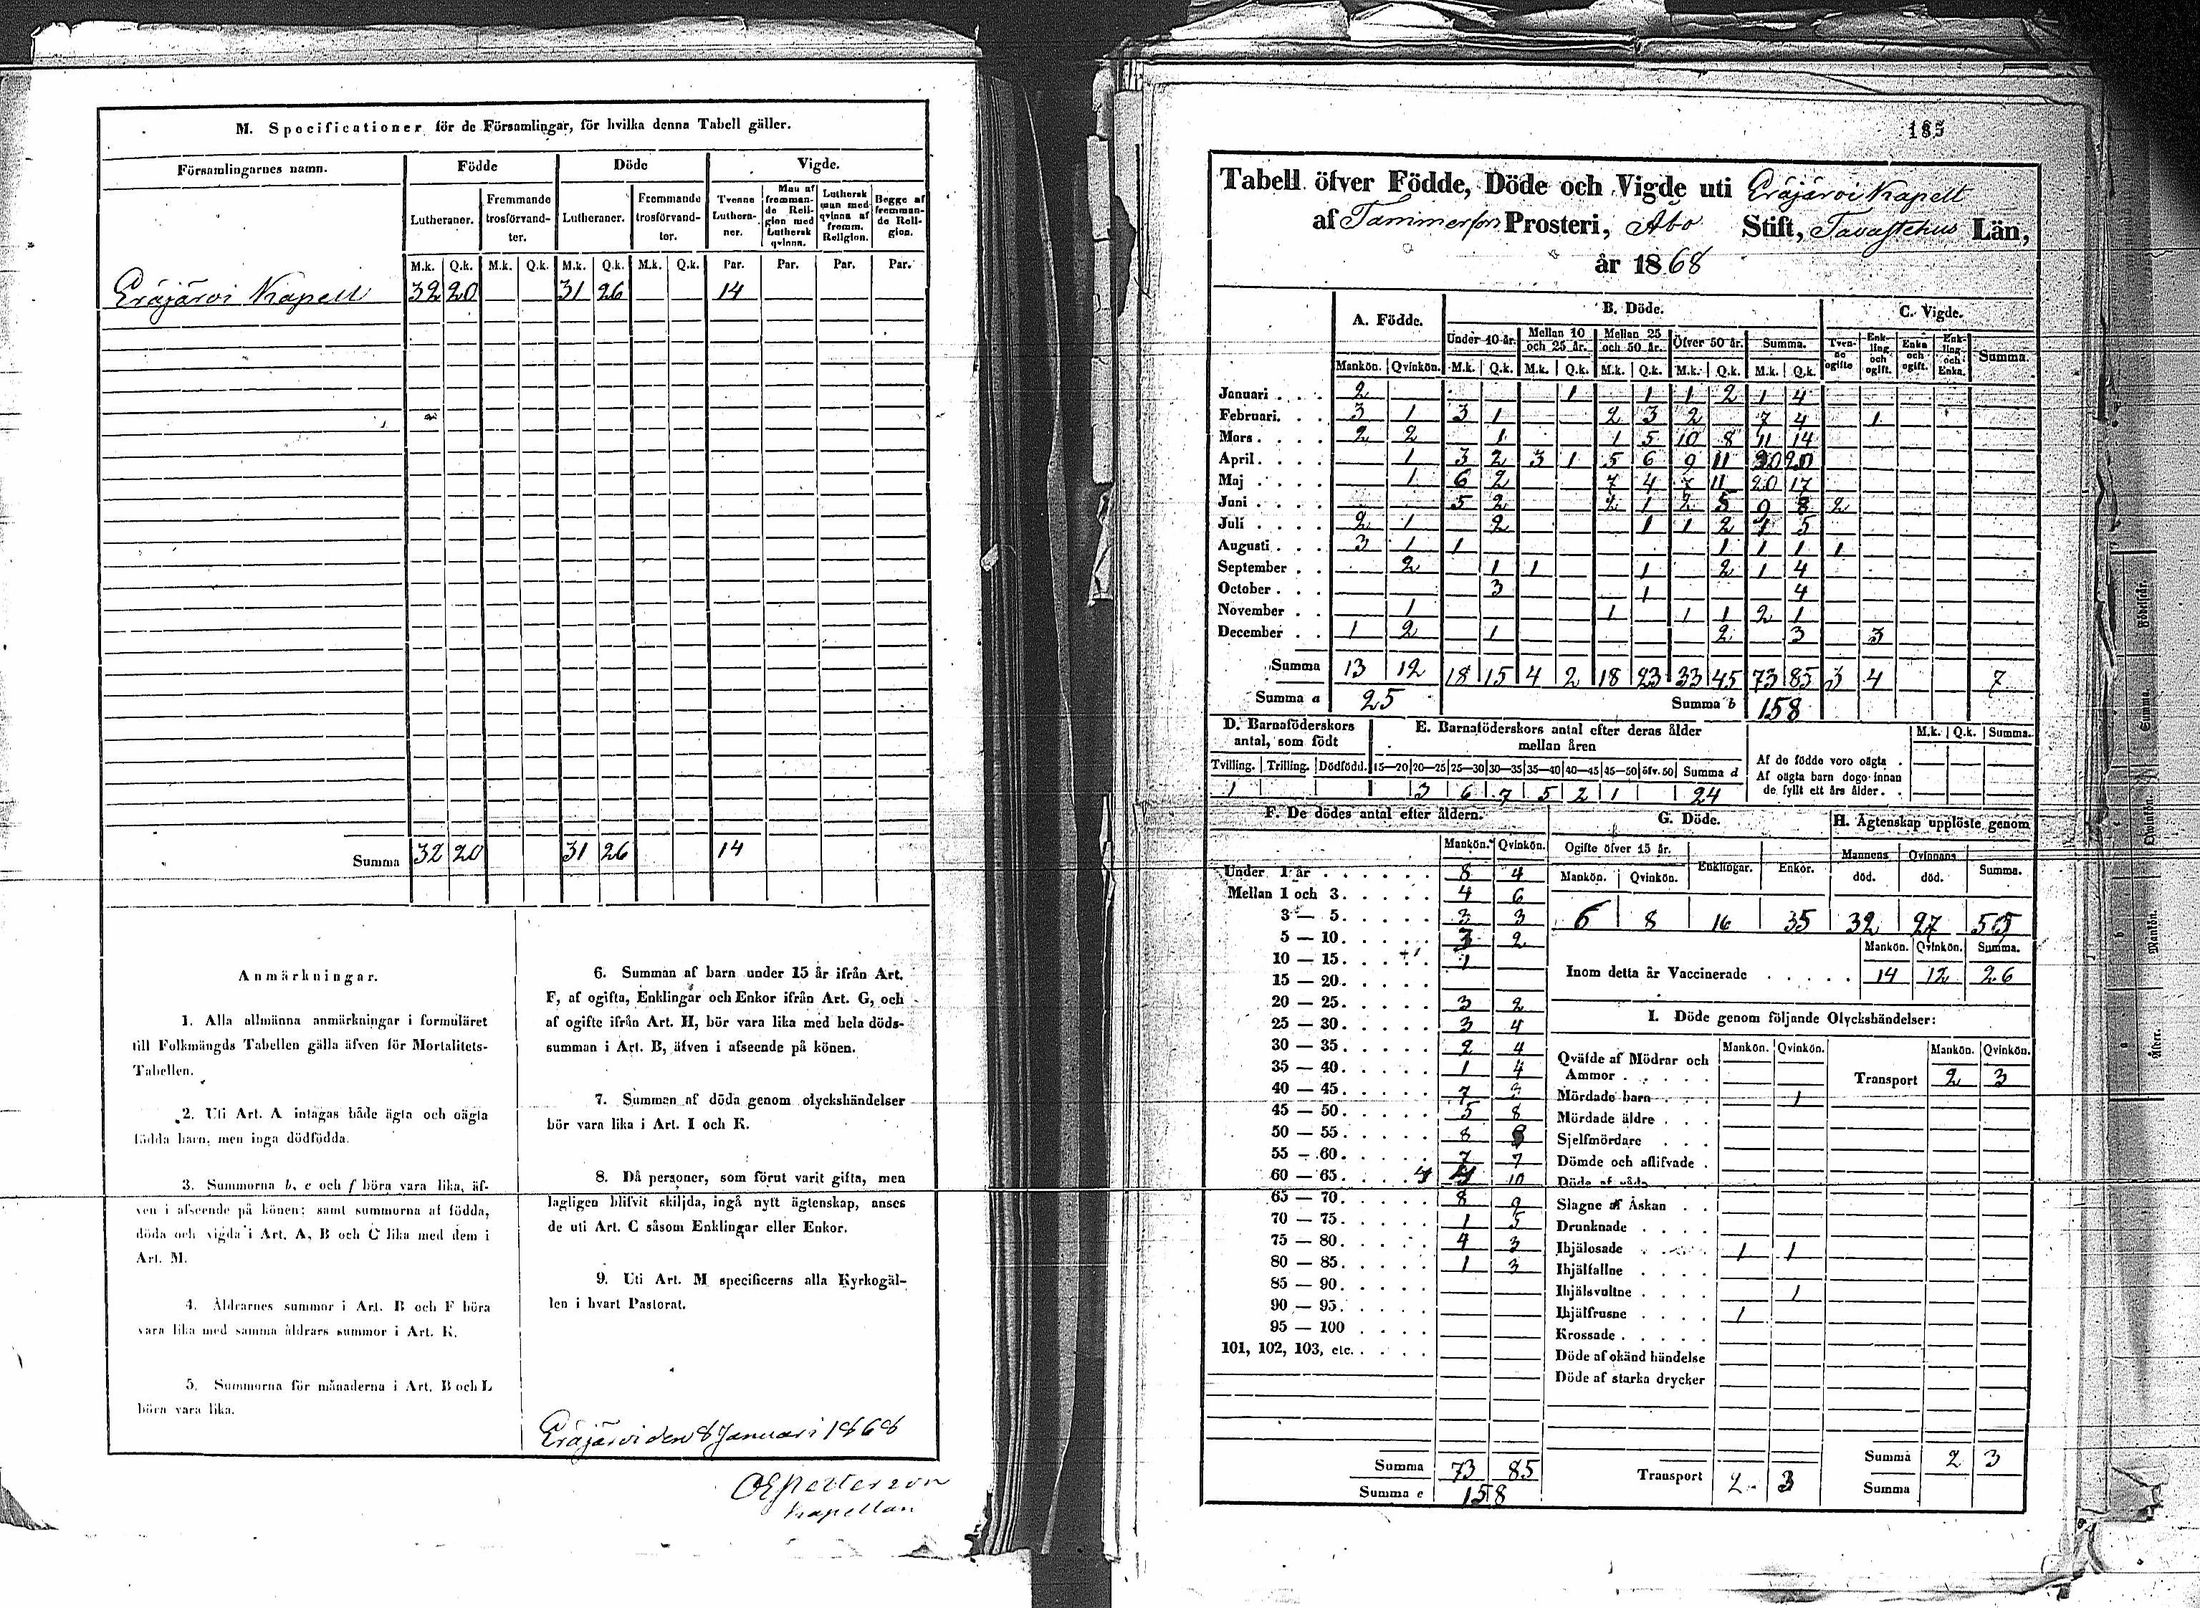 M. Specificationer för de Församlingar, för hvilka denna Tabell gäller.
Församlingarnes namn. Födde Döde Vigde.
Lutheraner. Fremmande trosförvandter. Lutheraner. Fremmande trosförvandter. Tvenne Lutheraner. Man af fremmande Religion med Luthersk qvinna. Luthersk man med qvinna af fremm. Religion. Begge af fremmande Religion.
M.k. Q.k. M.k. Q.k. M.k. Q.k. M.k. Q.k. Par. Par. Par. Par.
Eräjärvi Kapell 32 20 31 26 14
Summa 32 20 31 26 14
Anmärkningar.
1. Alla allmänna anmärkningar i formuläret
till Folkmängds Tabellen gälla äfven för Mortalitets-
Tabellen.
2. Uti Art. A intagas både ägta och oägta
födda barn, men inga dödfödda.
3. Summorna b, e och f böra vara lika, äf-
ven i afseende på könen; samt summorna af födda,
döda och vigda i Art. A, B och C lika med dem i
Art. M.
4. Åldrarnes summor i Art. B och F böra
vara lika med samma åldrars summor i Art. K.
5. Summorna för månaderna i Art. B och L
böra vara lika.
6. Summan af barn under 15 år ifrån Art.
F, af ogifta, Enklingar och Enkor ifrån Art. G, och
af ogifte ifrån Art. H, bör vara lika med hela döds-
summan i Art. B, äfven i afseende på könen.
7. Summan af döda genom olyckshändelser
bör vara lika i Art. I och K.
8. Då personer, som förut varit gifta, men
lagligen blifvit skiljda, ingå nytt ägtenskap, anses
de uti Art. C såsom Enklingar eller Enkor.
9. Uti Art. M specificeras alla Kyrkogäl-
len i hvart Pastorat.
Eräjärvi den 8 Januari 1868
Kapellan
185
Tabell öfver Födde, Döde och Vigde uti Eräjärvi Kapell
af Tammerfors Prosteri, Åbo Stift, Tavastehus Län,
år 1868
A. Födde. B. Döde. C. Vigde.
Under 10 år. Mellan 10 och 25 år. Mellan 25 och 50 år. Öfver 50 år. Summa. Tvenne ogifte Enkling och ogift. Enka och ogift. Enkling och Enka. Summa.
Mankön. Qvinkön. M.k. Q.k. M.k. Q.k. M.k. Q.k. M.k. Q.k. M.k. Q.k.
Januari 2 1 1 1 2 1 4
Februari 3 1 3 1 2 3 2 7 4 1
Mars 2 2 1 1 5 10 8 11 14
April 1 3 2 3 1 5 6 9 11 20 20
Maj 1 6 2 7 4 7 11 20 17
Juni 5 2 2 1 2 5 9 8 2
Juli 2 1 2 1 1 2 1 5
Augusti 3 1 1 1 1 1 1
September 2 1 1 1 2 1 4
October 3 1 4
November 1 1 1 1 2 1
December 1 2 1 2 3 3
Summa 13 12 18 15 4 2 18 23 33 45 73 85 3 4 7
Summa a 25 Summa b 158
D. Barnaföderskors antal, som födt
E. Barnaföderskors antal efter deras ålder mellan åren
M.k. Q.k. Summa.
Tvilling. Trilling. Dödfödd. 15—20 20—25 25—30 30—35 35—40 40—45 45—50 öfv. 50 Summa d
1 3 6 7 5 2 1 24
Af de födde voro oägta
Af oägta barn dogo innan
de fyllt ett års ålder.
F. De dödes antal efter åldern.
Mankön. Qvinkön.
Under 1 år 8 4
Mellan 1 och 3 4 6
3 — 5 3 3
5 — 10 3 2
10 — 15 1
15 — 20
20 — 25 3 2
25 — 30 3 4
30 — 35 2 4
35 — 40 1 4
40 — 45 7 3
45 — 50 5 8
50 — 55 8
55 — 60 7 7
60 — 65 4 10
65 — 70 8 9
70 — 75 1 5
75 — 80 4 3
80 — 85 1 3
85 — 90
90 — 95
95 — 100
101, 102, 103, etc.
Summa 73 85
Summa e 158
G. Döde.
Ogifte öfver 15 år. Enklingar. Enkor.
Mankön. Qvinkön.
6 8 16 35
H. Ägtenskap upplöste genom
Mannens död. Qvinnans död. Summa.
32 27
Mankön. Qvinkön. Summa.
Inom detta år Vaccinerade 14 12 26
I. Döde genom följande Olyckshändelser:
Mankön. Qvinkön. Mankön. Qvinkön.
Qväfde af Mödrar och
Ammor
Transport 2 3
Mördade barn 1
Mördade äldre
Sjelfmördare
Dömde och aflifvade
Döde af våda
Slagne af Åskan
Drunknade
Ihjälosade 1 1
Ihjälfallne
Ihjälsvultne 1
Ihjälfrusne 1
Krossade
Döde af okänd händelse
Döde af starka drycker
Summa 2 3
Transport 2 3
Summa